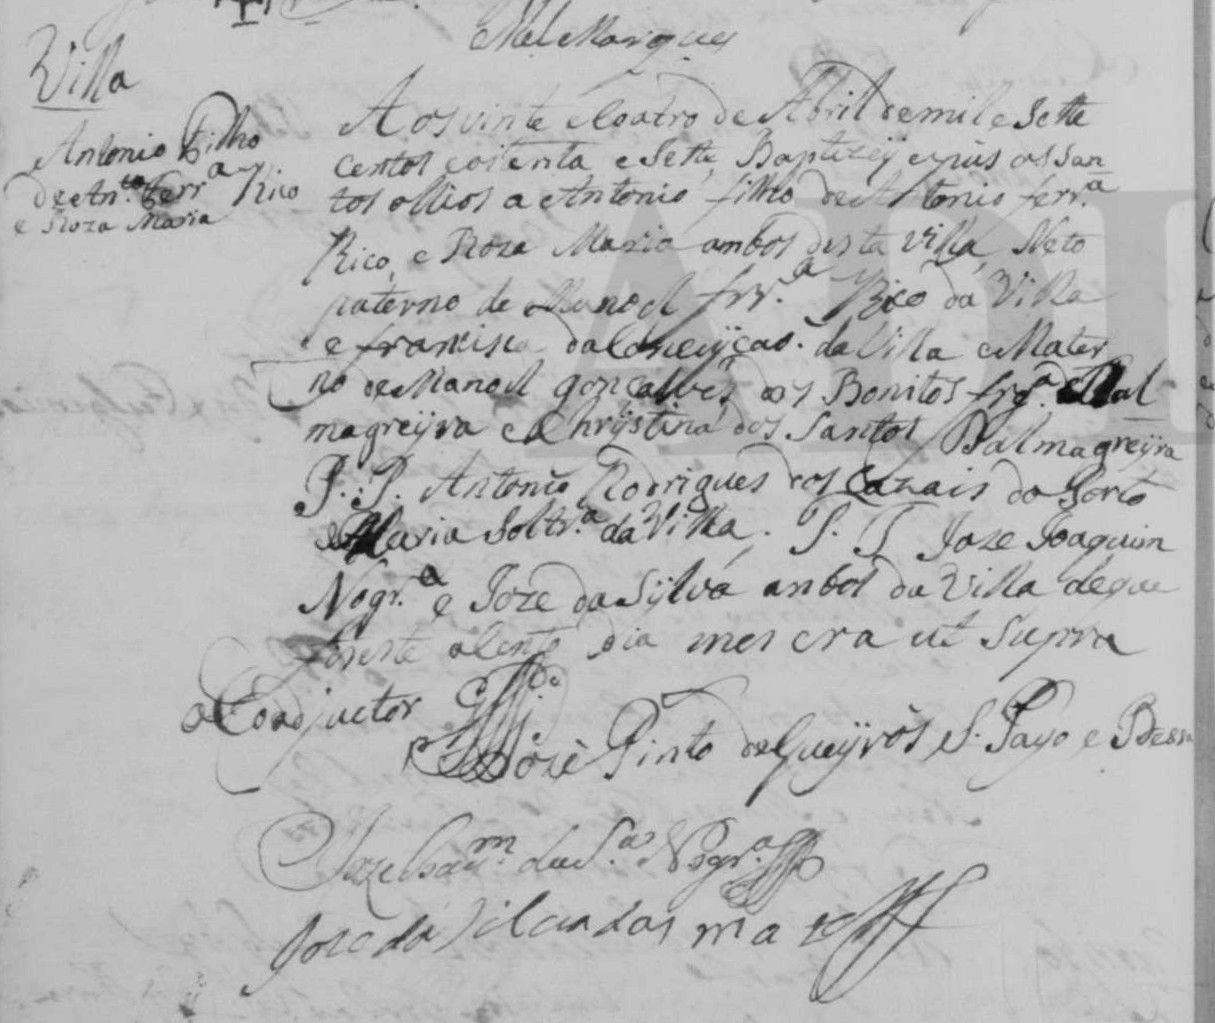 Mel Marques
Villa
Antonio Filho
de Ant.to Ferr.a Rico
e Roza Maria
Aos vinte e coatro de Abril de mil e Sette
centos e oitenta e Sette Baptizey e pus os San
tos ollios a Antonio filho de Antonio ferr.a
Rico, e Roza Maria ambos desta villa, Neto
paterno de Manoel frr.a Rico da Villa
e francisca da Conceyçaõ. da Villa e Mater
no de Manoel gonçalves dos Bonitos frg.a de Pal
magreyra e Chrystina dos Santos Palmagreyra
P. P. Antonio Rodrigues dos Cazais do Porto
e Maria Soltr.a da Villa. T. T. Joze Joaquim
Nogr.a e Joze da Sylva anbos da Villa de que
fis este acento dia mes era ut supra
o Coadjuctor
Jozè Pinto de Queyròs S. Payo e Bessa
Joze Joaq.m da S.a Nogr.a
Joze da Silva das